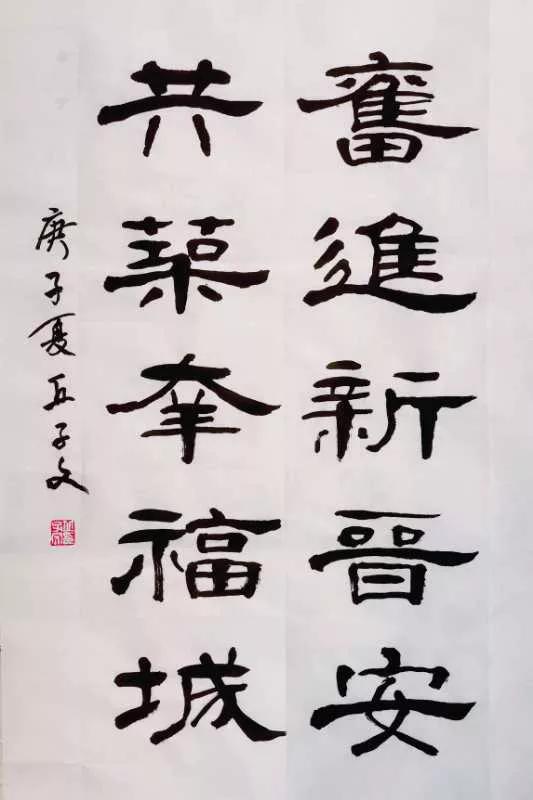 奮進新晉安
共築幸福城
庚子夏丘子文